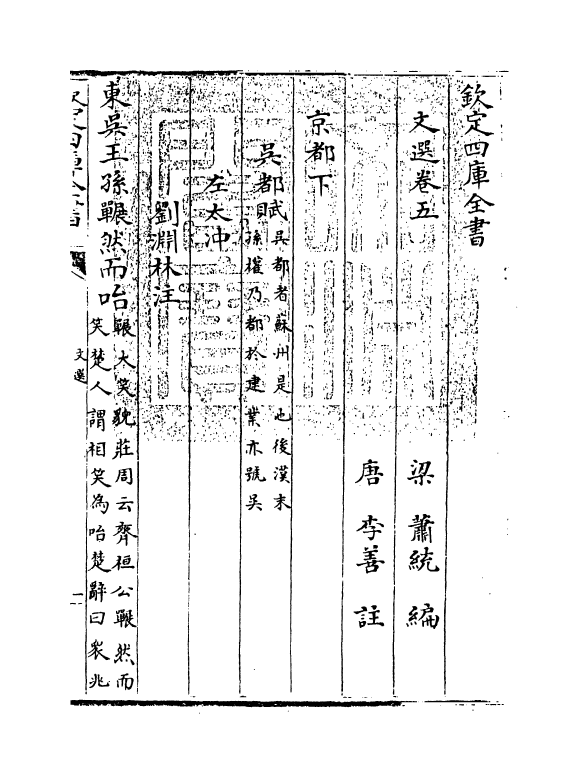 欽定四庫全書
文選卷五
梁 蕭統 編
唐 李善 註
京都下
吳都賦吳都者蘇州是也後漢末
孫權乃都於建業亦號吳
左太冲
劉淵林注
東吳王孫囅然而咍囅大笑貌莊周云齊桓公囅然而
笑楚人謂相笑為咍楚辭曰衆兆
文選
一